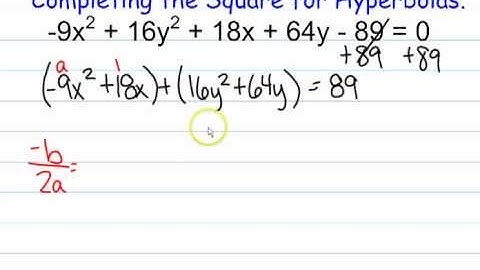 Completing the Square for Hyperbolas:
-9x² + 16y² + 18x + 64y - 89 = 0
+89 +89
a 1
(-9x² + 18x) + (16y² + 64y) = 89
-b/2a =